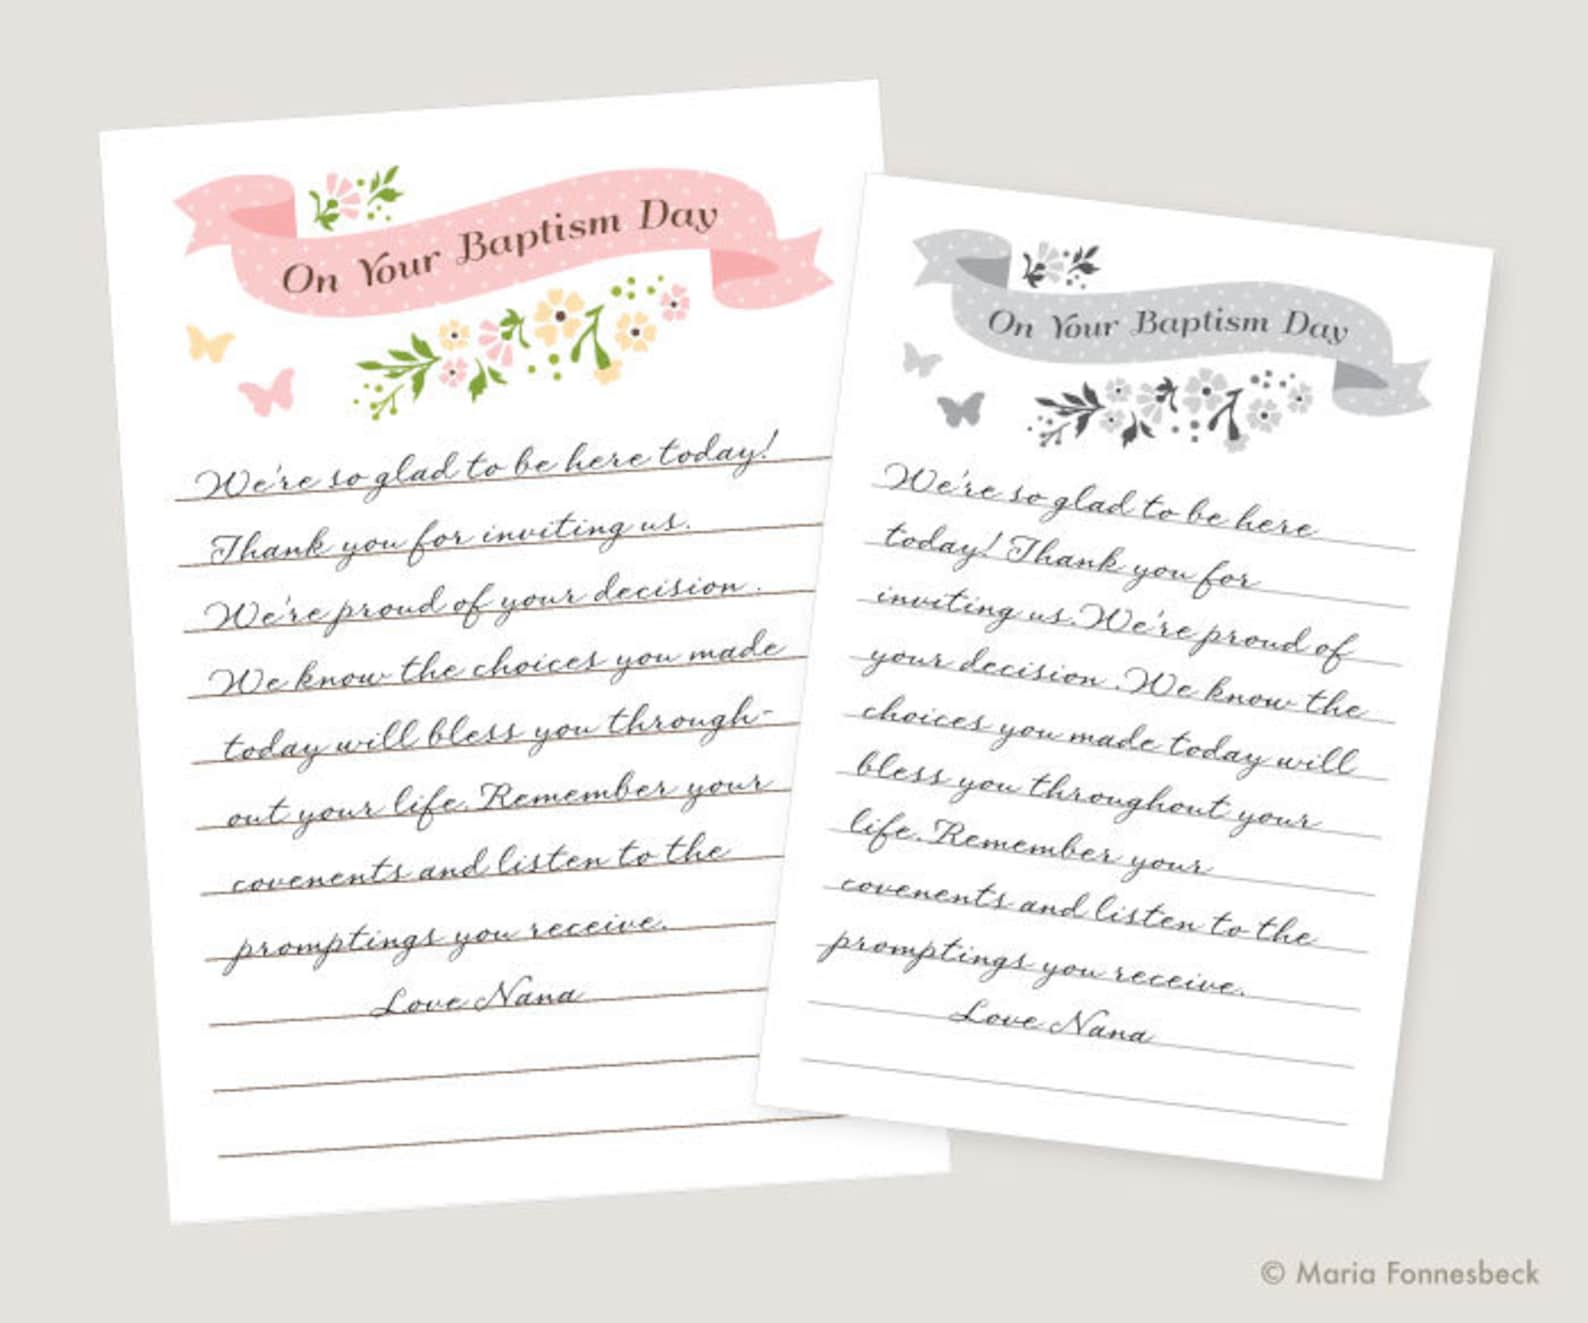 On Your Baptism Day
We're so glad to be here today!
Thank you for inviting us.
We're proud of your decision.
We know the choices you made
today will bless you through-
out your life. Remember your
covenents and listen to the
promptings you receive.
Love Nana
On Your Baptism Day
We're so glad to be here
today! Thank you for
inviting us. We're proud of
your decision. We know the
choices you made today will
bless you throughout your
life. Remember your
covenents and listen to the
promptings you receive.
Love Nana
© Maria Fonnesbeck